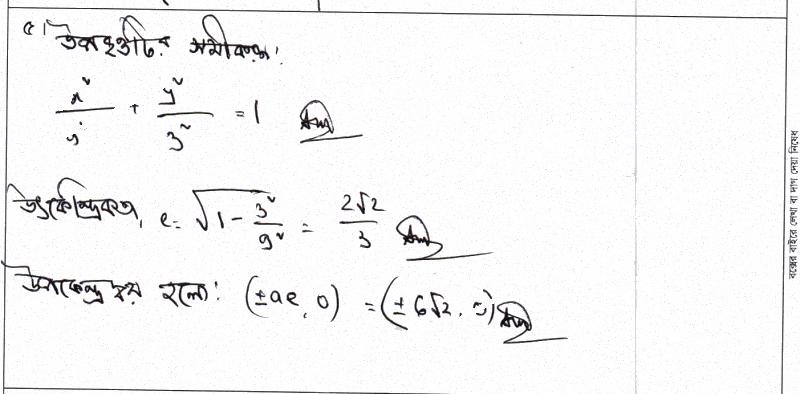 ৫। উপবৃত্তটির সমীকরণ:
x²/9² + y²/3² = 1 Ans
উৎকেন্দ্রিকতা, e = √(1 - 3²/9²) = 2√2/3 Ans
উপকেন্দ্রদ্বয় হলো: (±ae, 0) = (±6√2, 0) Ans
বক্সের বাইরে লেখা বা দাগ দেয়া নিষেধ